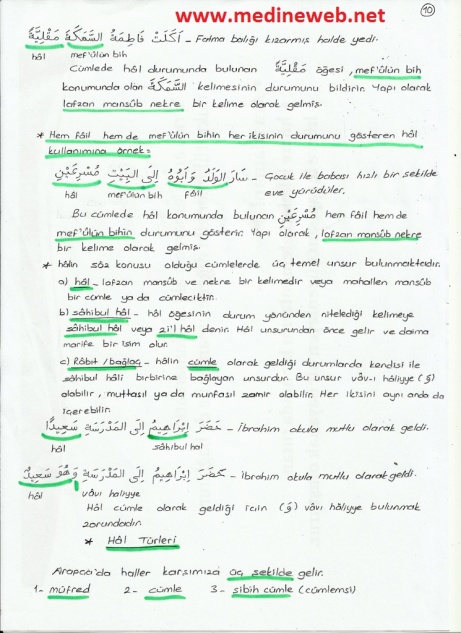 www.medineweb.net
10
أَكَلَتْ فَاطِمَةُ السَّمَكَةَ مَقْلِيَّةً - Fatma balığı kızarmış halde yedi.
hâl mef'ûlün bih
Cümlede hâl durumunda bulunan مَقْلِيَّةً öğesi, mef'ûlün bih
konumunda olan السَّمَكَةَ kelimesinin durumunu bildirir. Yapı olarak
lafzan mansûb nekre bir kelime olarak gelmiş.
* Hem fâil hem de mef'ûlün bihin her ikisinin durumunu gösteren hâl
kullanımına örnek=
سَارَ الوَلَدُ وَ أَبُوهُ إِلَى البَيْتِ مُسْرِعَيْنِ - Çocuk ile babası hızlı bir şekilde
eve yürüdüler.
hâl mef'ûlün bih fâil
Bu cümlede hâl konumunda bulunan مُسْرِعَيْنِ hem fâil hem de
mef'ûlün bihin durumunu gösterir. Yapı olarak, lafzan mansûb nekre
bir kelime olarak gelmiş.
* hâlin söz konusu olduğu cümlelerde üç temel unsur bulunmaktadır.
a) hâl - lafzan mansûb ve nekre bir kelimedir veya mahallen mansûb
bir cümle ya da cümleciktir.
b) sâhibul hâl - hâl öğesinin durum yönünden nitelediği kelimeye
sâhibul hâl veya zi'l hâl denir. Hâl unsurundan önce gelir ve daima
marife bir isim olur.
c) Râbıt/bağlaç - hâlin cümle olarak geldiği durumlarda kendisi ile
sâhibul hâli birbirine bağlayan unsurdur. Bu unsur vâv-ı hâliyye (وَ)
olabilir, muttasıl ya da munfasıl zamir olabilir. Her ikisini aynı anda da
içerebilir.
حَضَرَ إِبْرَاهِيمُ إِلَى المَدْرَسَةِ سَعِيدًا - İbrahim okula mutlu olarak geldi.
hâl sâhibul hal
حَضَرَ إِبْرَاهِيمُ إِلَى المَدْرَسَةِ وَهُوَ سَعِيدٌ - İbrahim okula mutlu olarak geldi.
hâl vâvı haliyye
Hâl cümle olarak geldiği için (وَ) vâvı hâliyye bulunmak
zorundadır.
* Hâl Türleri
Arapça'da haller karşımıza üç şekilde gelir.
1- müfred 2- cümle 3- şibih cümle (cümlemsi)